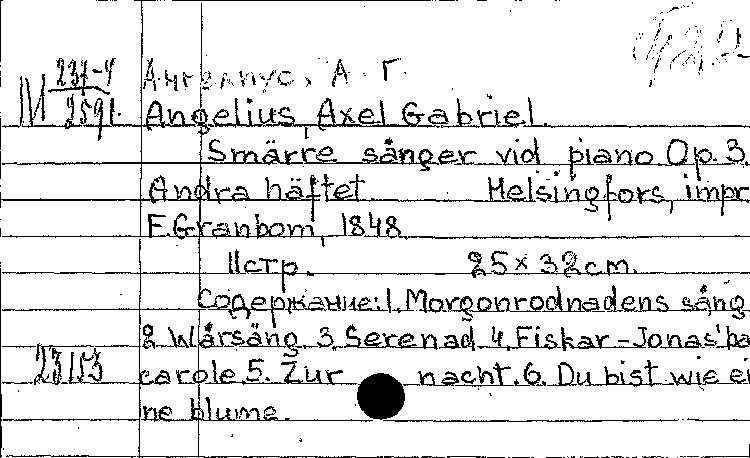 М 237-4 Ангелиус, А. Г.
2591. Angelius, Axel Gabriel.
Smärre sånger vid piano. Op. 3.
Andra häftet Helsingfors, impr
F. Granbom, 1848
11стр. 25×32cm.
Содержание: 1. Morgonrodnadens sång
2 Wårsång. 3. Serenad. 4. Fiskar-Jonas' ba
23153 carole. 5. Zur nacht. 6. Du bist wie ei
ne blume.